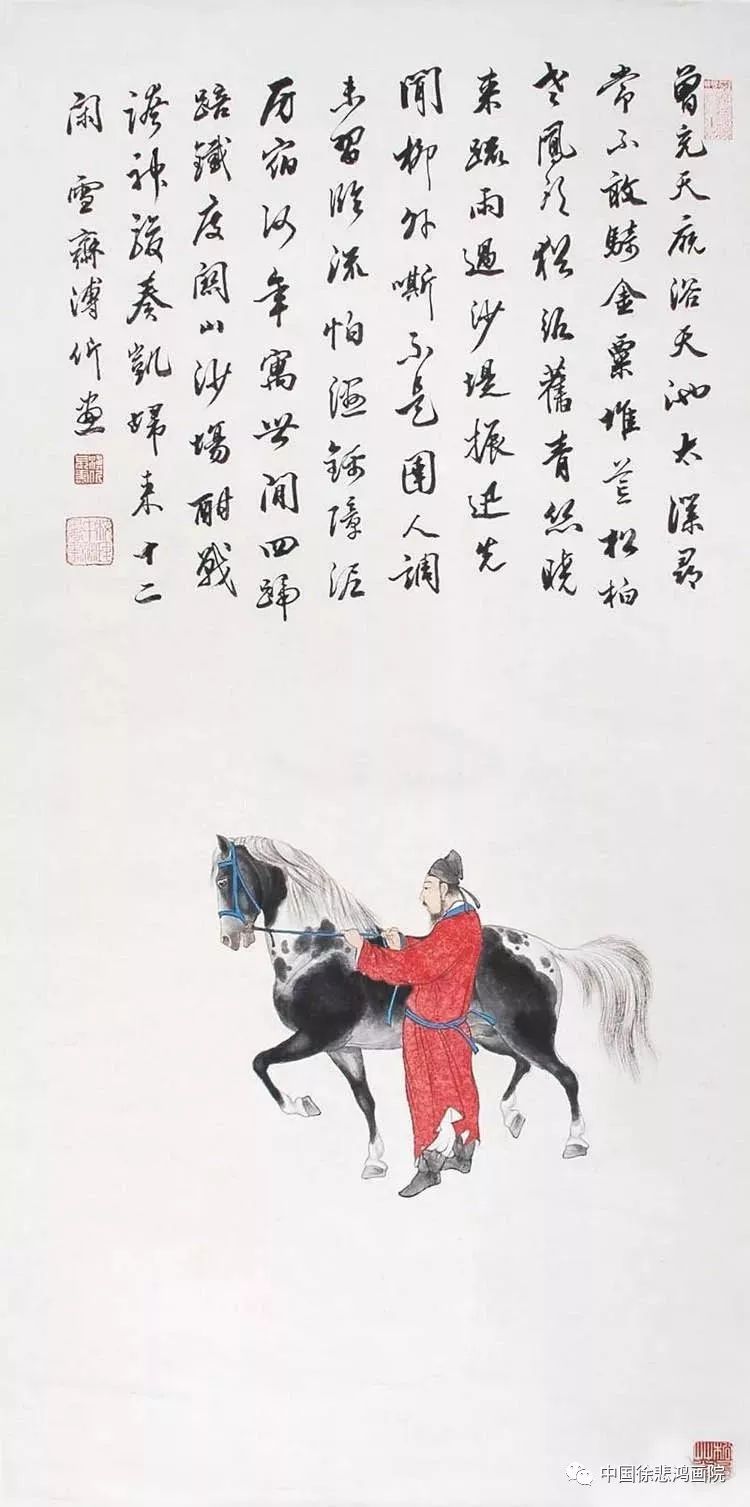 曾充天廐浴天池太僕尋
常不敢騎金粟堆荒松柏
老鳳頭猶絡舊青絲曉
來疏雨過沙堤振迅先
聞柳外嘶不是圉人調
未習臨流怕濕錦障泥
房宿何年寓世間四蹄
踣鐵度關山沙場酣戰
誇神駿奏凱歸來十二
閑 雪齋溥伒畫
中国徐悲鸿画院